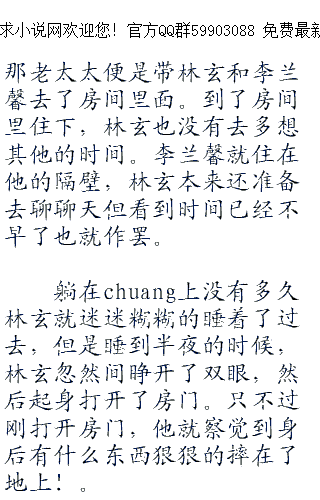 求小说网欢迎您！官方QQ群59903088 免费最新
那老太太便是带林玄和李兰
馨去了房间里面。到了房间
里住下，林玄也没有去多想
其他的时间。李兰馨就住在
他的隔壁，林玄本来还准备
去聊聊天但看到时间已经不
早了也就作罢。
躺在chuang上没有多久
林玄就迷迷糊糊的睡着了过
去，但是睡到半夜的时候，
林玄忽然间睁开了双眼，然
后起身打开了房门。只不过
刚打开房门，他就察觉到身
后有什么东西狠狠的摔在了
地上！。